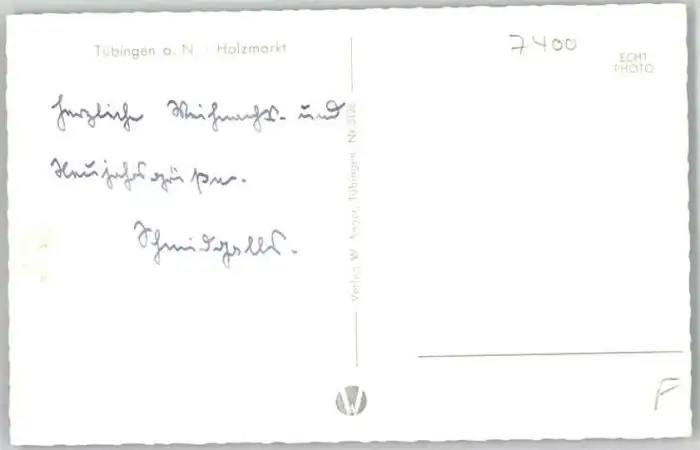 Tübingen a. N. Holzmarkt
7400
ECHT
PHOTO
Herzliche Weihnachts- und
Neujahrsgrüße.
Schmidgalls.
Verlag W. Tübingen Nr.
W
F